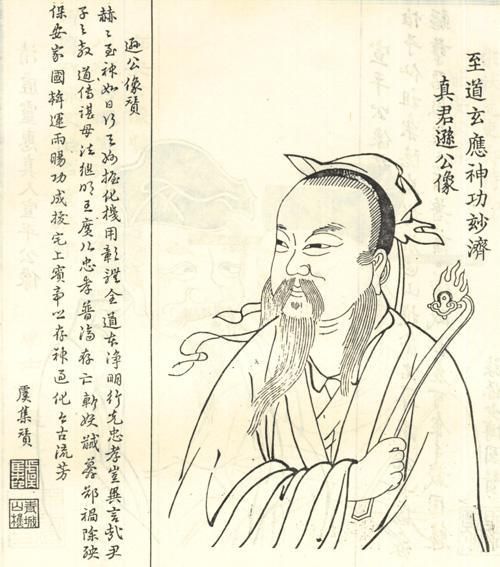 至道玄應神功妙濟
真君遜公像
遜公像贊
赫〻至神如日行 化機用彰證全道在淨明行先忠孝豈異言哉
子之教道傳諶母法繼明王廣以忠孝普濟存亡斬妖馘 禍除殃
保安家國斡運雨暘功成拔宅上賓帝 存神過化 古流芳
虞集贊
青城山樵